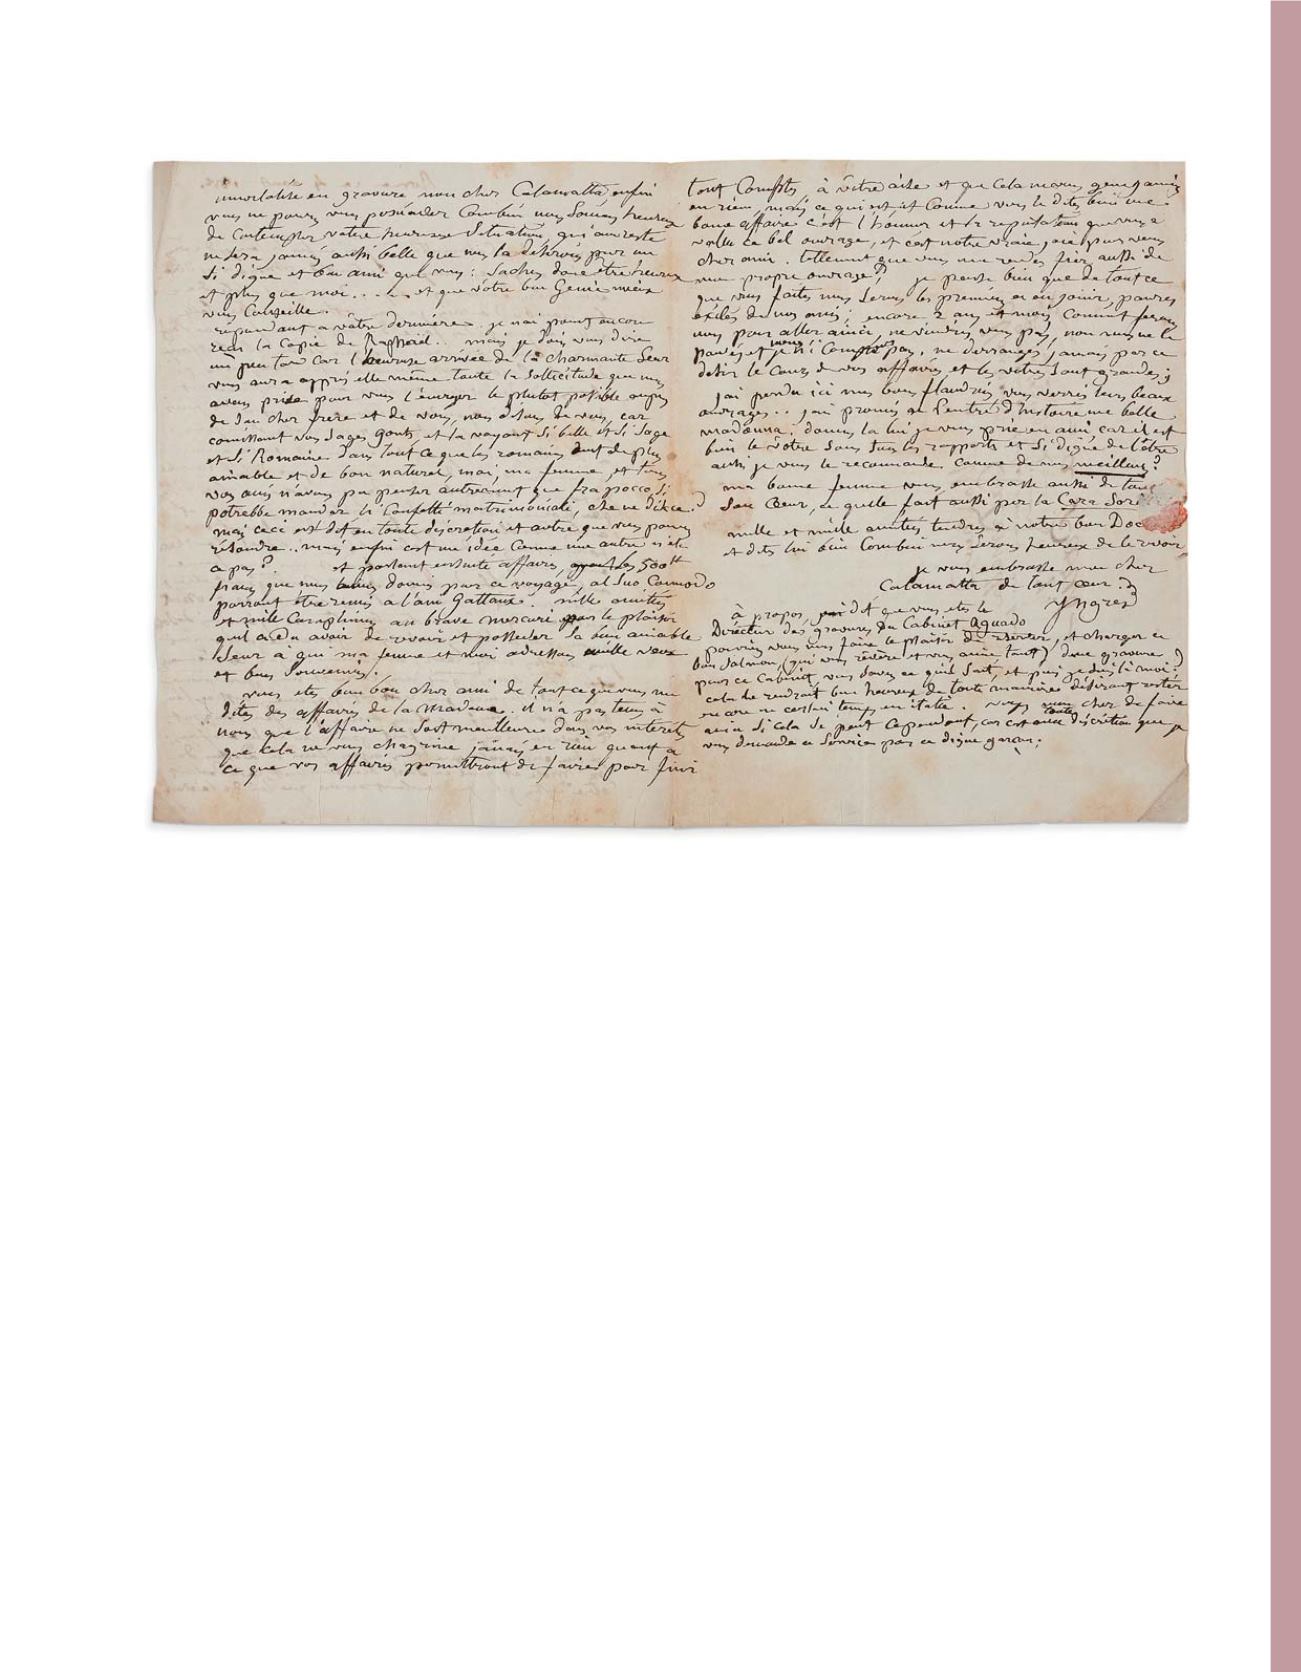 immortalité en gravure mon cher Calamatta, enfin
vous ne pouvez vous persuader Combien nous Sommes heureux
de Contempler votre heureuse Situation, qui au reste
ne sera jamais aussi belle que nous la désirons pour un
Si digne et bon ami que vous : Sachez donc être heureux
et plus que moi.... et que votre bon Genie mieux
vous Conseille.
répondant a vôtre dernière je nai point encore
recu la Copie de Raphael.. mais je dois vous dire
un peu tard car l'heureuse arrivée de la charmante Seur
vous aura appris elle même toute la Sollicitude que nous
avons prise pour vous l'envoyer le plutot possible auprès
de Son cher frere et de vous, nous disons de vous, car
connissant vos Sages gouts et la voyant Si belle et Si Sage
et Si Romaine dans tout ce que les romains ont de plus
aimable et de bon naturel, moi, ma femme, et tous
vos amis n'avons pu penser autrement que fra pocco, Si
potrebbe mandar li Confetti matrimoniali, che ne dice?
mais ceci est dit en toute discretion et autre que vous pouvez
résoudre.. mais enfin cest une idée Comme une autre n'est
ce pas? et parlant ensuite affaires, les 500 ##
francs que nous donnés pour ce voyage, al Suo Commodo
pourront être remis a l'ami Gatteaux. mille amitiés
et mille Complimens au brave mercuri pour le plaisir
quil a du avoir de revoir et posséder Sa bien aimable
Seur à qui ma femme et moi adressons mille veux
et bons Souvenirs.
vous etes bien bon cher ami de tout ce que vous me
dites des affaires de la Madone. il n'a pas tenu à
nous que l'affaire ne Soit meilleure dans vos interets
que cela ne vous chagrine jamais en rien quant a
ce que vos affaires permettront de faire pour finir
tout Compte, à vôtre aise et que Cela ne vous gene jamais
en rien, mais ce qui est Comme vous le dites bien une
bonne affaire c'est l'honneur et la reputation que vous a
vallu ce bel ouvrage, et cest notre vraie joie pour vous
cher ami. tellement que vous me rendez fier aussi de
mon propre ouvrage? je pense bien que de tout ce
que vous faites nous Serons les premiers a en jouir, pauvres
éxilés de nos amis; encore 2 ans et mois Comment ferons
nous pour aller ainsi, ne viendrez vous pas, non nous ne le
pouvés et je n'y Compte pas, ne derrangez jamais par ce
desir le Cours de vos affaires et les votres Sont grandes;
jai perdu ici mes bons flandrins vous verrés leurs beaux
ouvrages.. jai promis a l'entre d'histoire une belle
madonna; donnez la lui je vous prie en ami car il est
bien le vôtre Sous tous les rapports et Si digne de l'être
aussi je vous le recommande Comme de nos meilleurs?
ma bonne femme vous embrasse aussi de tout
Son Coeur, ce quelle fait aussi pour la Cara Sor
mille et mille amitiés tendres a notre bon Doc
et dites lui bien Combien nous Serons heureux de le revoir
je vous embrasse mon cher
Calamatta de tout coeur.
Ingres
à propos, dit que vous etes le
Directeur des gravures du Cabinet Aguado
pourriez vous nous faire le plaisir de réserver, et charger ce
bon Salmon, (qui vous révère et vous aime tant) d'une gravure
pour ce Cabinet, vous savez ce quil Sait, et puis je suis là moi:
cela le rendrait bien heureux de toute manière désirant rester
encore un certain temps en italie. voyez mon cher de faire
ainsi Si cela Se peut Cependant, car cest avec toute discrétion que je
vous demande ce Service pour ce digne garcon;